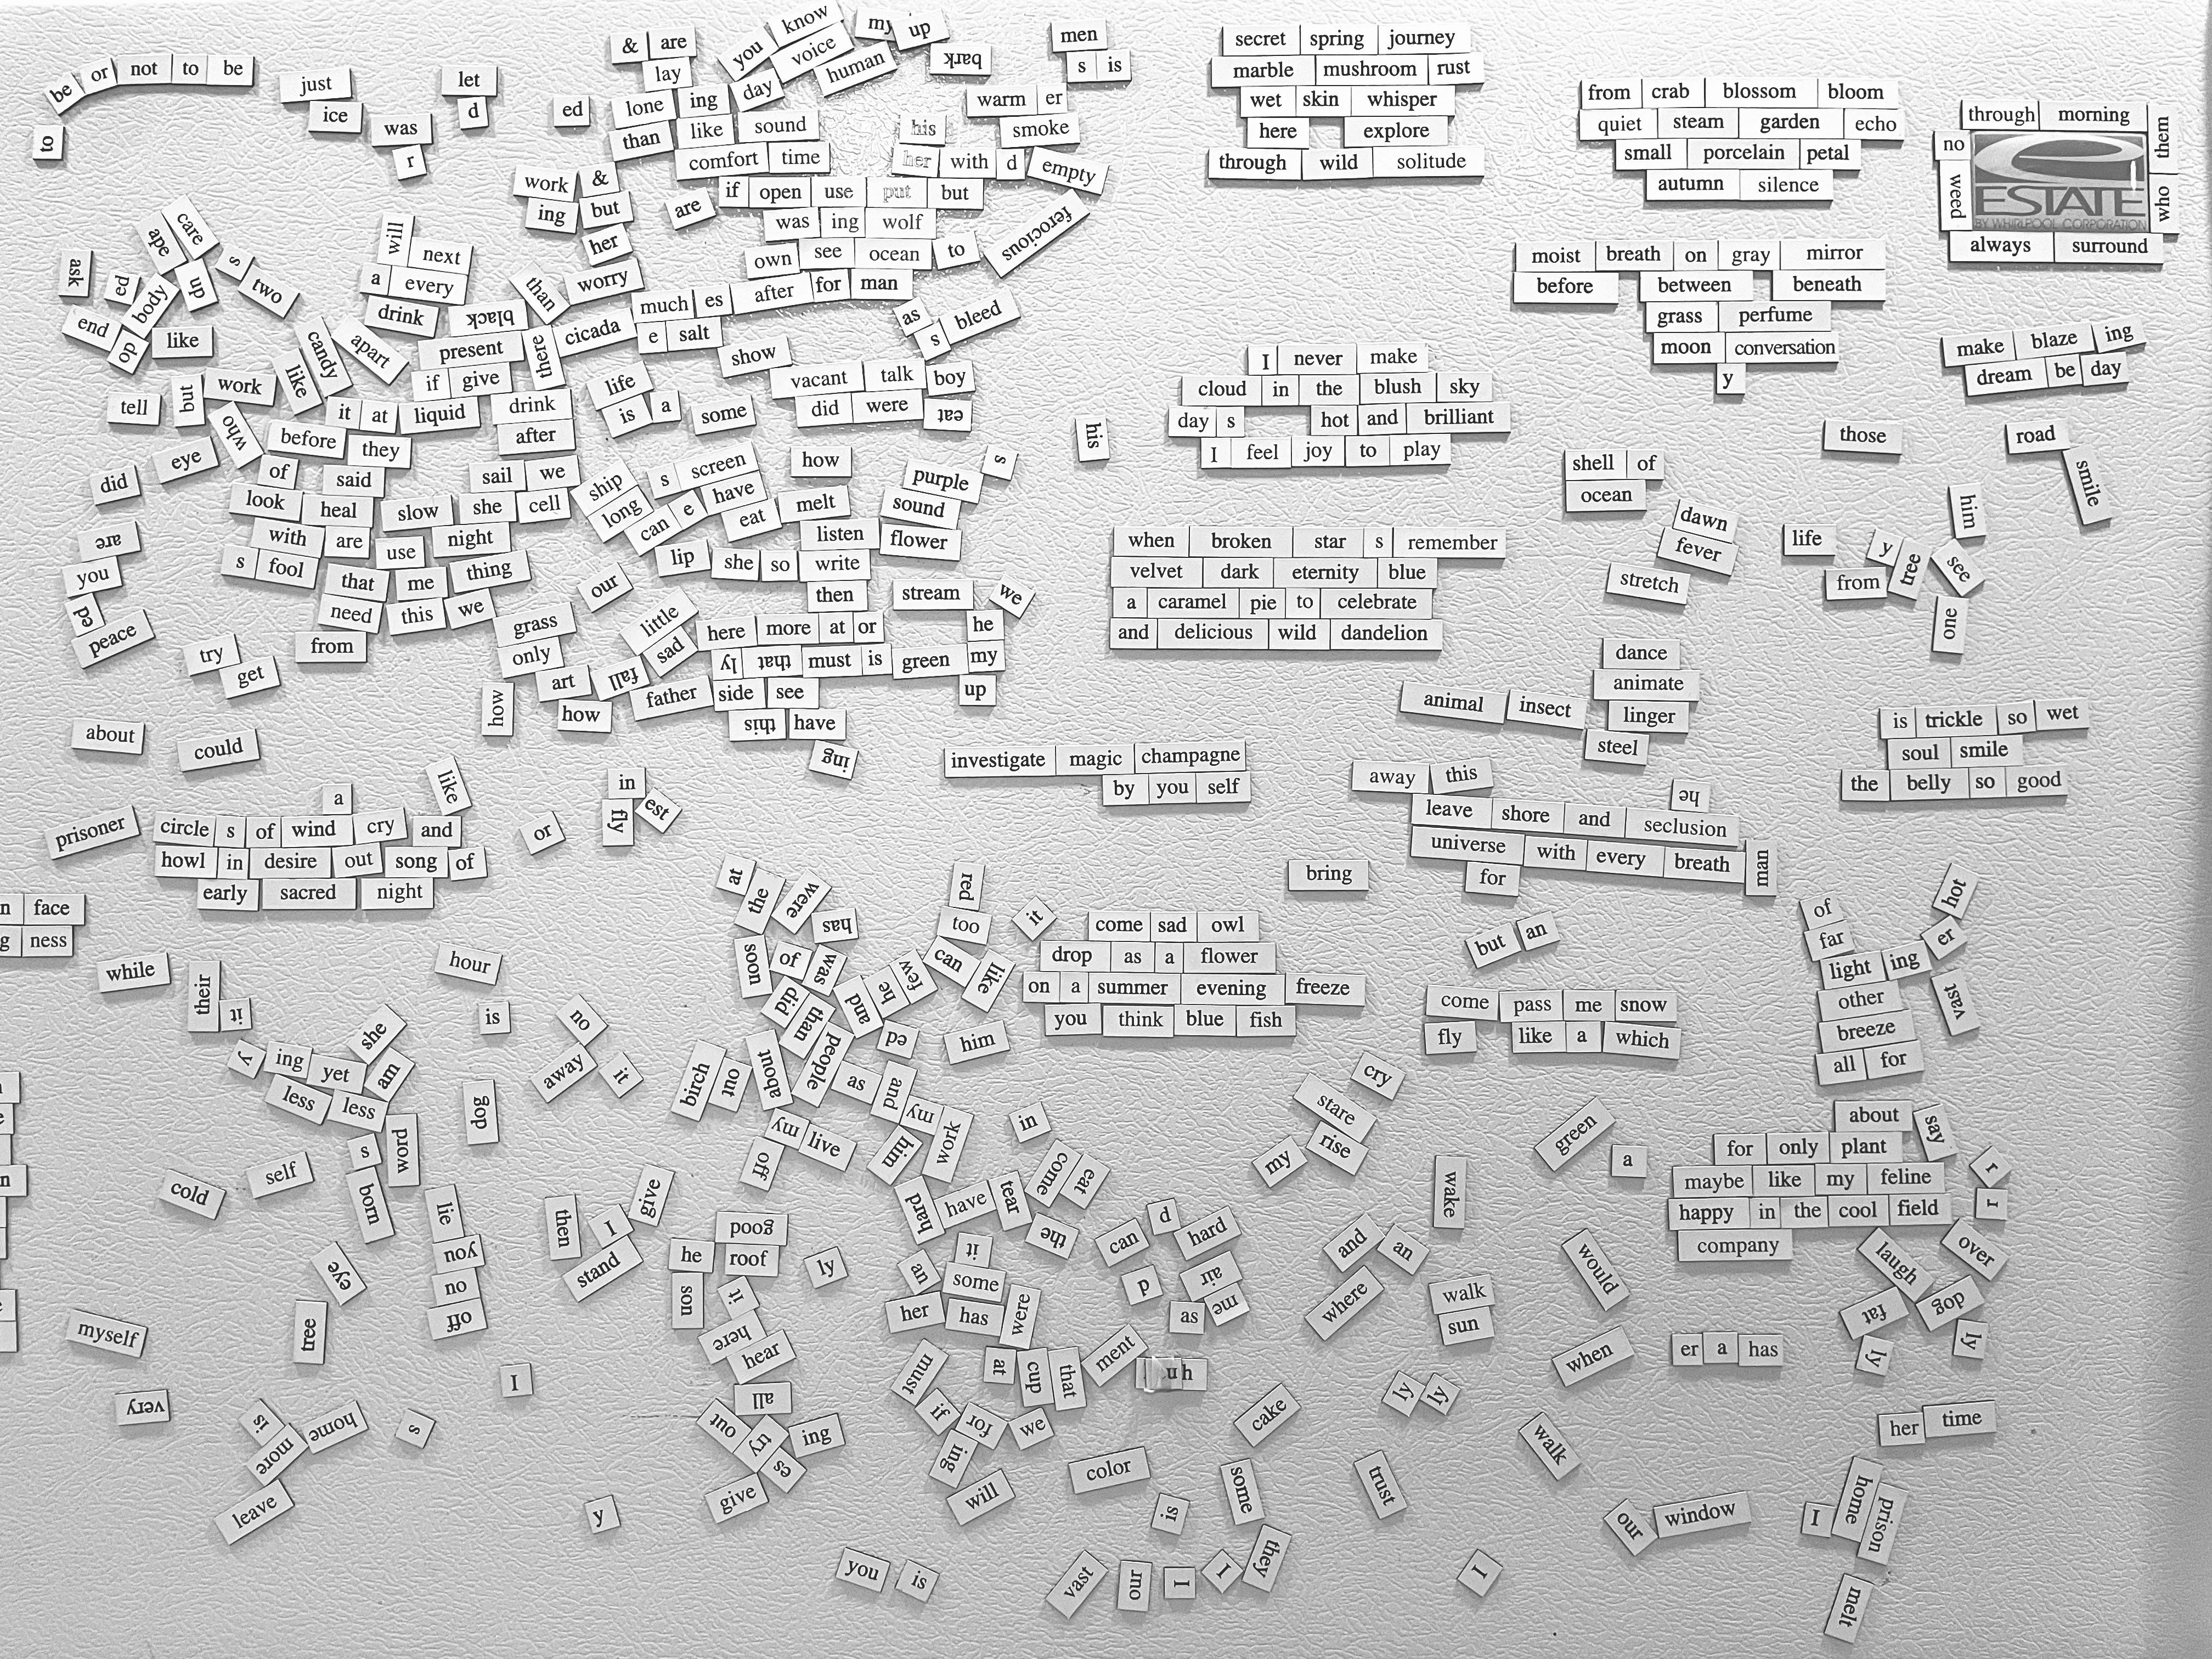 be or not to be
to
just
ice
was
r
let
d
ed
& are
lay
lone ing day
than like sound
comfort time
you know
voice
human
my up
bark
men
s is
warm er
smoke
his
her with d empty
work &
ing but
her
are
if open use put but
was ing wolf
own see ocean to
ferocious
worry
than
much es after for man
e salt
cicada
there
as
s bleed
show
vacant talk boy
did were eat
secret spring journey
marble mushroom rust
wet skin whisper
here explore
through wild solitude
from crab blossom bloom
quiet steam garden echo
small porcelain petal
autumn silence
through morning
them
no
weed
who
ESTATE
BY WHIRLPOOL CORPORATION
always surround
moist breath on gray mirror
before between beneath
grass perfume
moon conversation
y
make blaze ing
dream be day
ask
ape care
ed
body
up
s
two
end
do
like
will
next
a every
drink black
candy
like
apart
present
if give
it at liquid drink
after
life
is a
some
tell
but
work
who
before they
of said
look heal
with are
s fool
eye
did
slow she cell
sail we
use night
that me thing
need this we
from
are
you
ed
peace
try
get
about
could
ship
long
s screen
can e have
eat melt
how
purple
s
sound
listen flower
lip she so write
then
our
stream
we
he
my
up
grass
only
art fall
how
how
little
sad
here more at or
ly that must is green
father side see
this have
ing
his
I never make
cloud in the blush sky
day s hot and brilliant
I feel joy to play
when broken star s remember
velvet dark eternity blue
a caramel pie to celebrate
and delicious wild dandelion
shell of
ocean
dawn
fever
stretch
those
road
smile
him
life
y
tree
from
see
one
dance
animate
linger
steel
animal insect
investigate magic champagne
by you self
is trickle so wet
soul smile
the belly so good
away this
he
leave shore and seclusion
universe with every breath man
for
bring
prisoner
a
like
circle s of wind cry and
howl in desire out song of
early sacred night
or
in
fly
est
n face
g ness
while
their
it
hour
is
no
away
it
at
the
were
has
soon
of
was
did
than
people
and
he
few
red
too
can
like
it
ed
him
come sad owl
drop as a flower
on a summer evening freeze
you think blue fish
but an
come pass me snow
fly like a which
of
far
light ing er
hot
vast
other
breeze
all for
y ing yet
she
am
less less
word
s
born
dog
birch
out
about
as
and
my
work
him
my live
off
in
cold
self
lie
you
no
off
eye
tree
myself
very
then
I
give
stand
good
he roof
son
it
here
hear
ly
all
out
try
es
ing
give
hard have tear
come
eat
the
it
us
some
her has were
must
at
cup
that
ment
u h
if
for
we
ing
will
can
d
hard
d
air
as me
cry
stare
rise
my
green
a
wake
and
an
where
walk
sun
would
when
about
say
for only plant
maybe like my feline
happy in the cool field
company
r
r
laugh
over
fat
dog
ly
ly
er a has
her time
I
is
more
home
leave
s
y
color
cake
ly
ly
is
some
trust
walk
our window
I
home
prison
melt
you is
vast
or
I
I
they
I